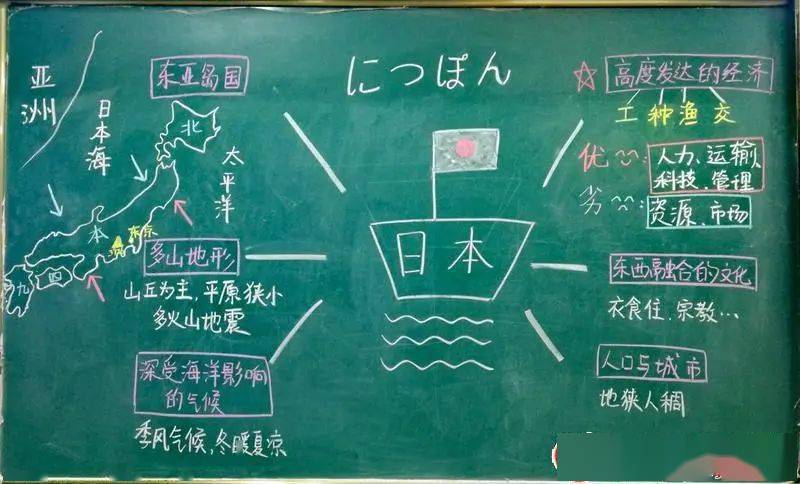 にっぽん
亚洲
日本海
太平洋
北
本
四
九
东京
东亚岛国
多山地形
山丘为主,平原狭小
多火山地震
深受海洋影响
的气候
季风气候,冬暖夏凉
日本
☆ 高度发达的经济
工种渔交
优 : 人力、运输
科技、管理
劣 : 资源、市场
东西融合的文化
衣食住、宗教…
人口与城市
地狭人稠